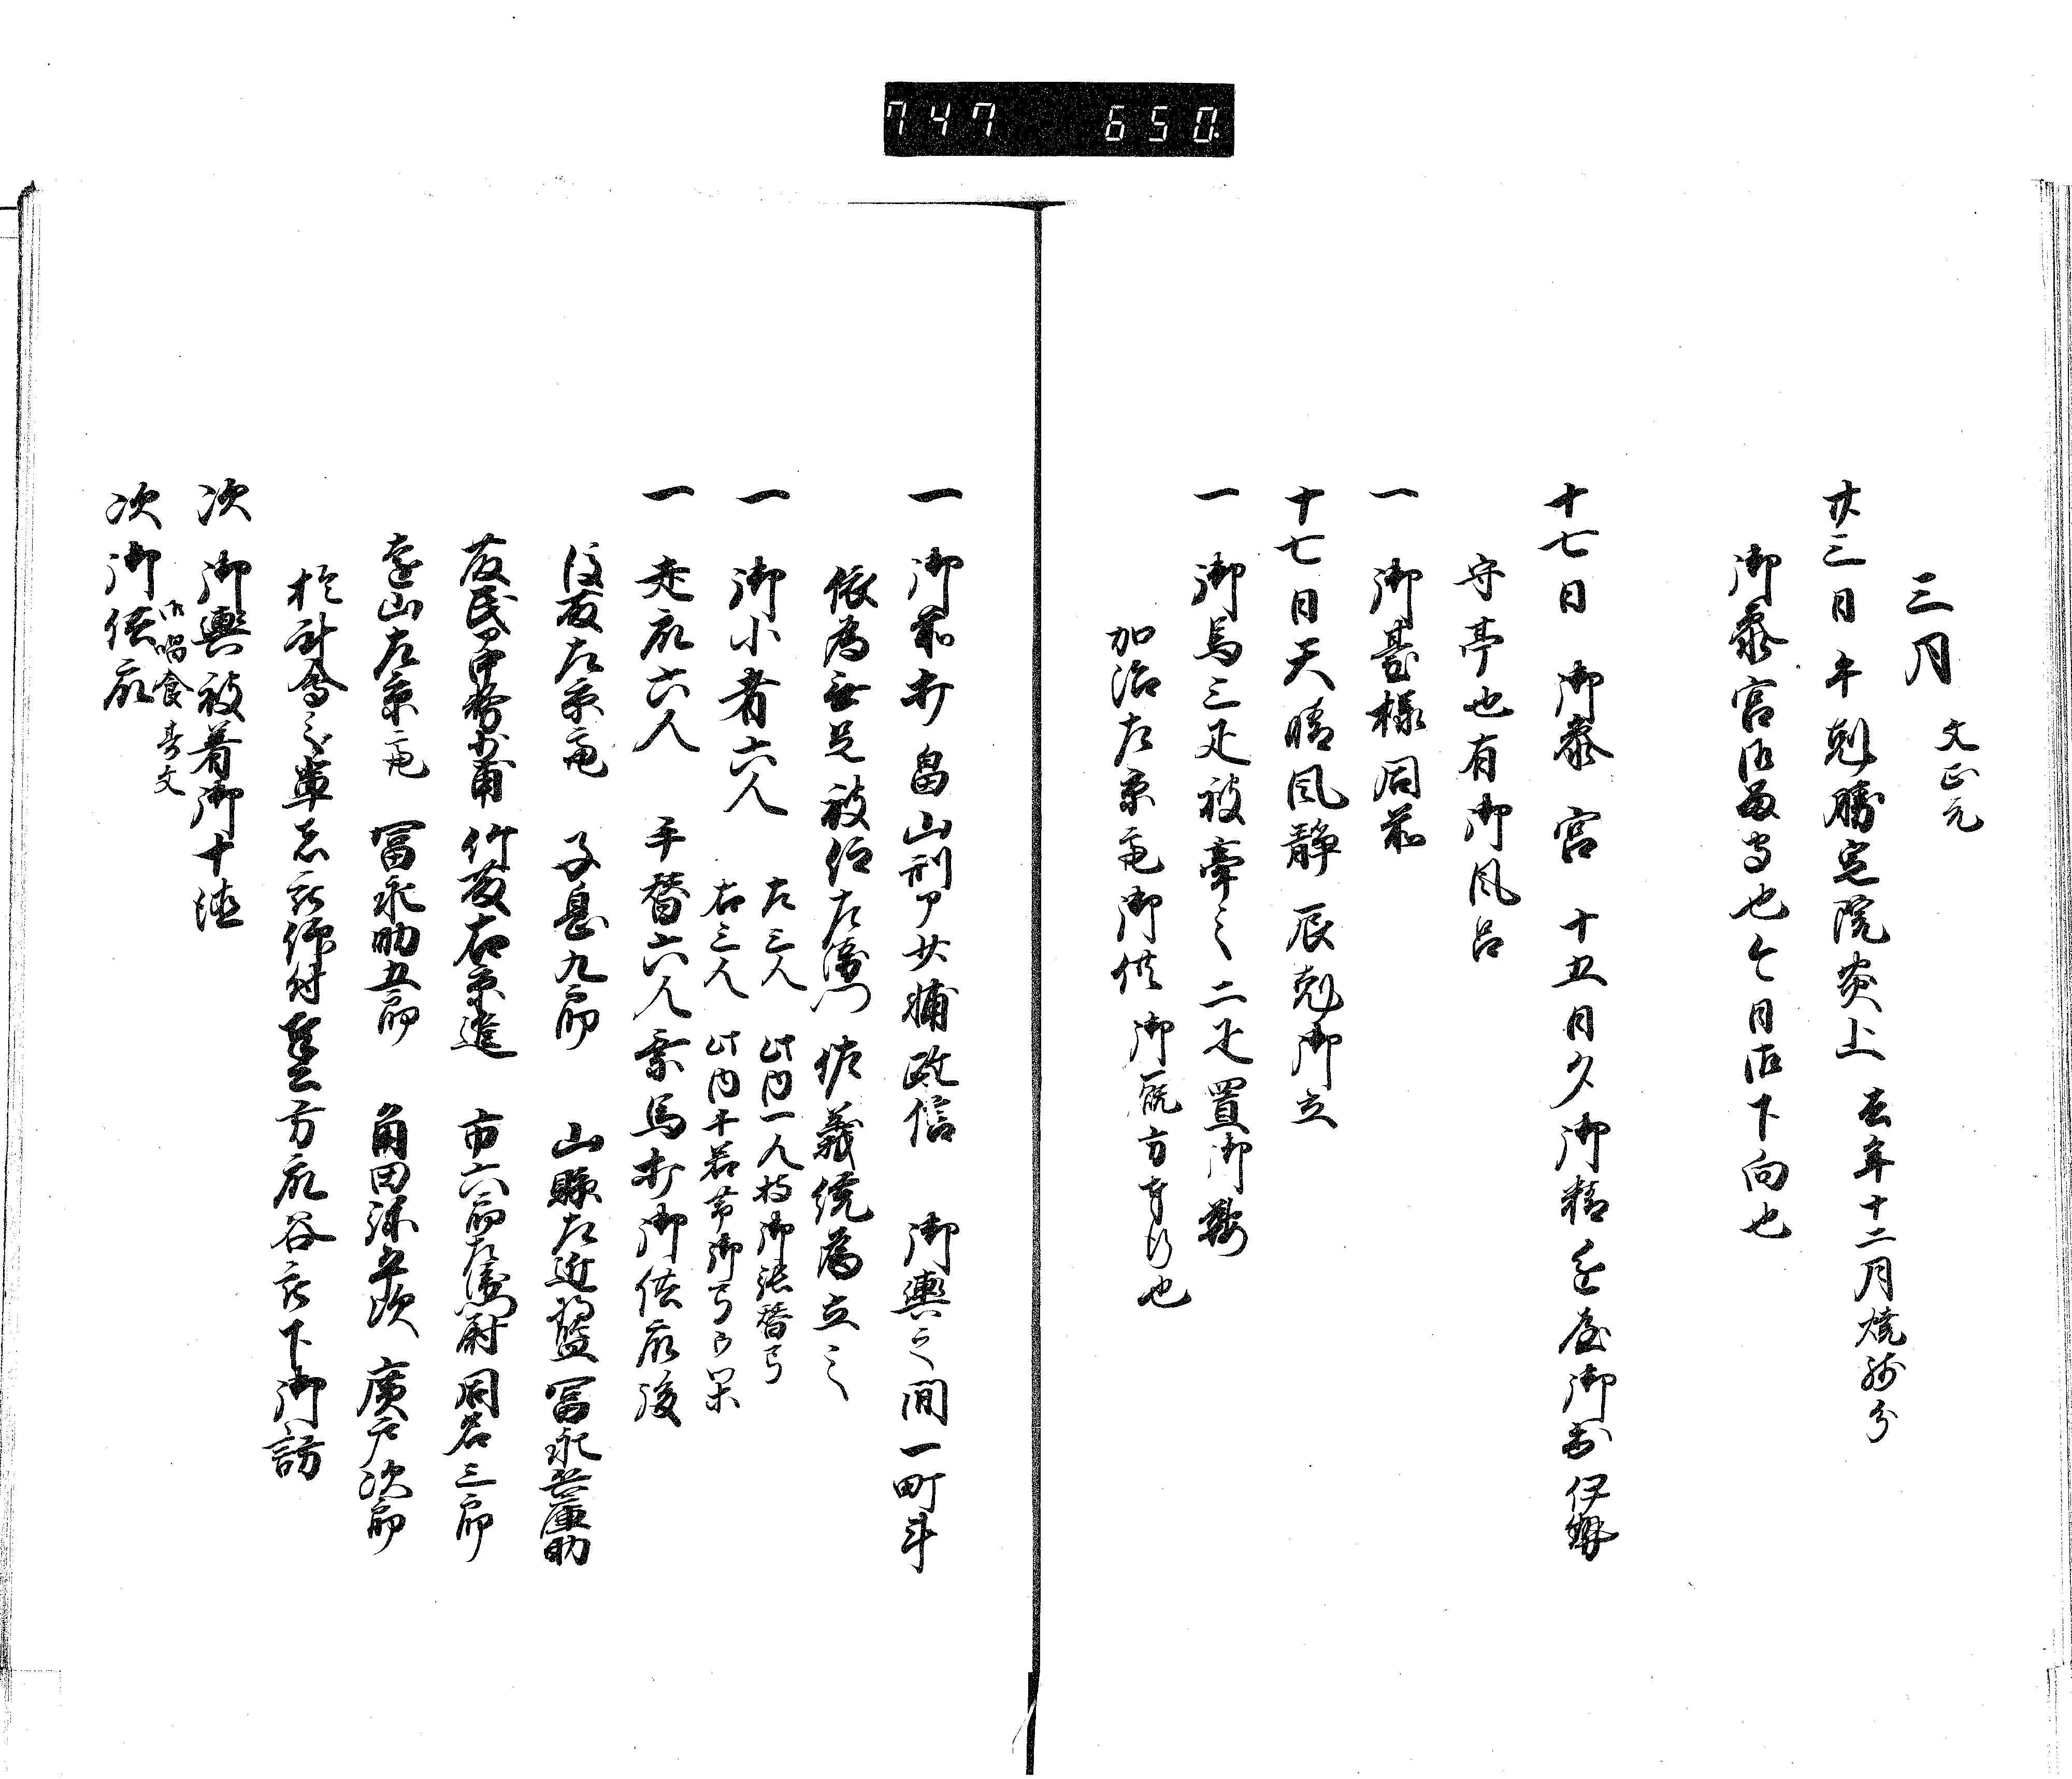 747 650
三月 文正元
廿三日午剋勝定院炎上 去年十二月焼残分
御參宮御留守也今日御下向也
十七日 御參宮 十五日夕御精進屋御出伊勢
守亭也有御風呂
一 御臺様同前
十七日天晴風静辰剋御立
一 御馬三疋被牽之二疋置御鞍
加治左京亮御供 御厩方奉行也
一 御前打 畠山刑ア少輔政信 御輿之間一町斗
依為無足被仰左衛門佐義統為立之
一 御小者六人 左三人 此内一人持御張替弓
右三人 此内千若常御弓
一 走衆六人 手替六人乗馬打御供衆後
後藤左京亮 子息九郎 山縣左近将監 冨永兵庫助
藤民ア中務少甫 竹藤右京進 市六郎左衛門尉 同名三郎
遠山左京亮 冨永助五郎 角田弥五次 廣戸次郎
於計會之輩者被仰付 方衆各被下御訪
次 御輿被着御十徳
次 御供衆
御喝食 春文